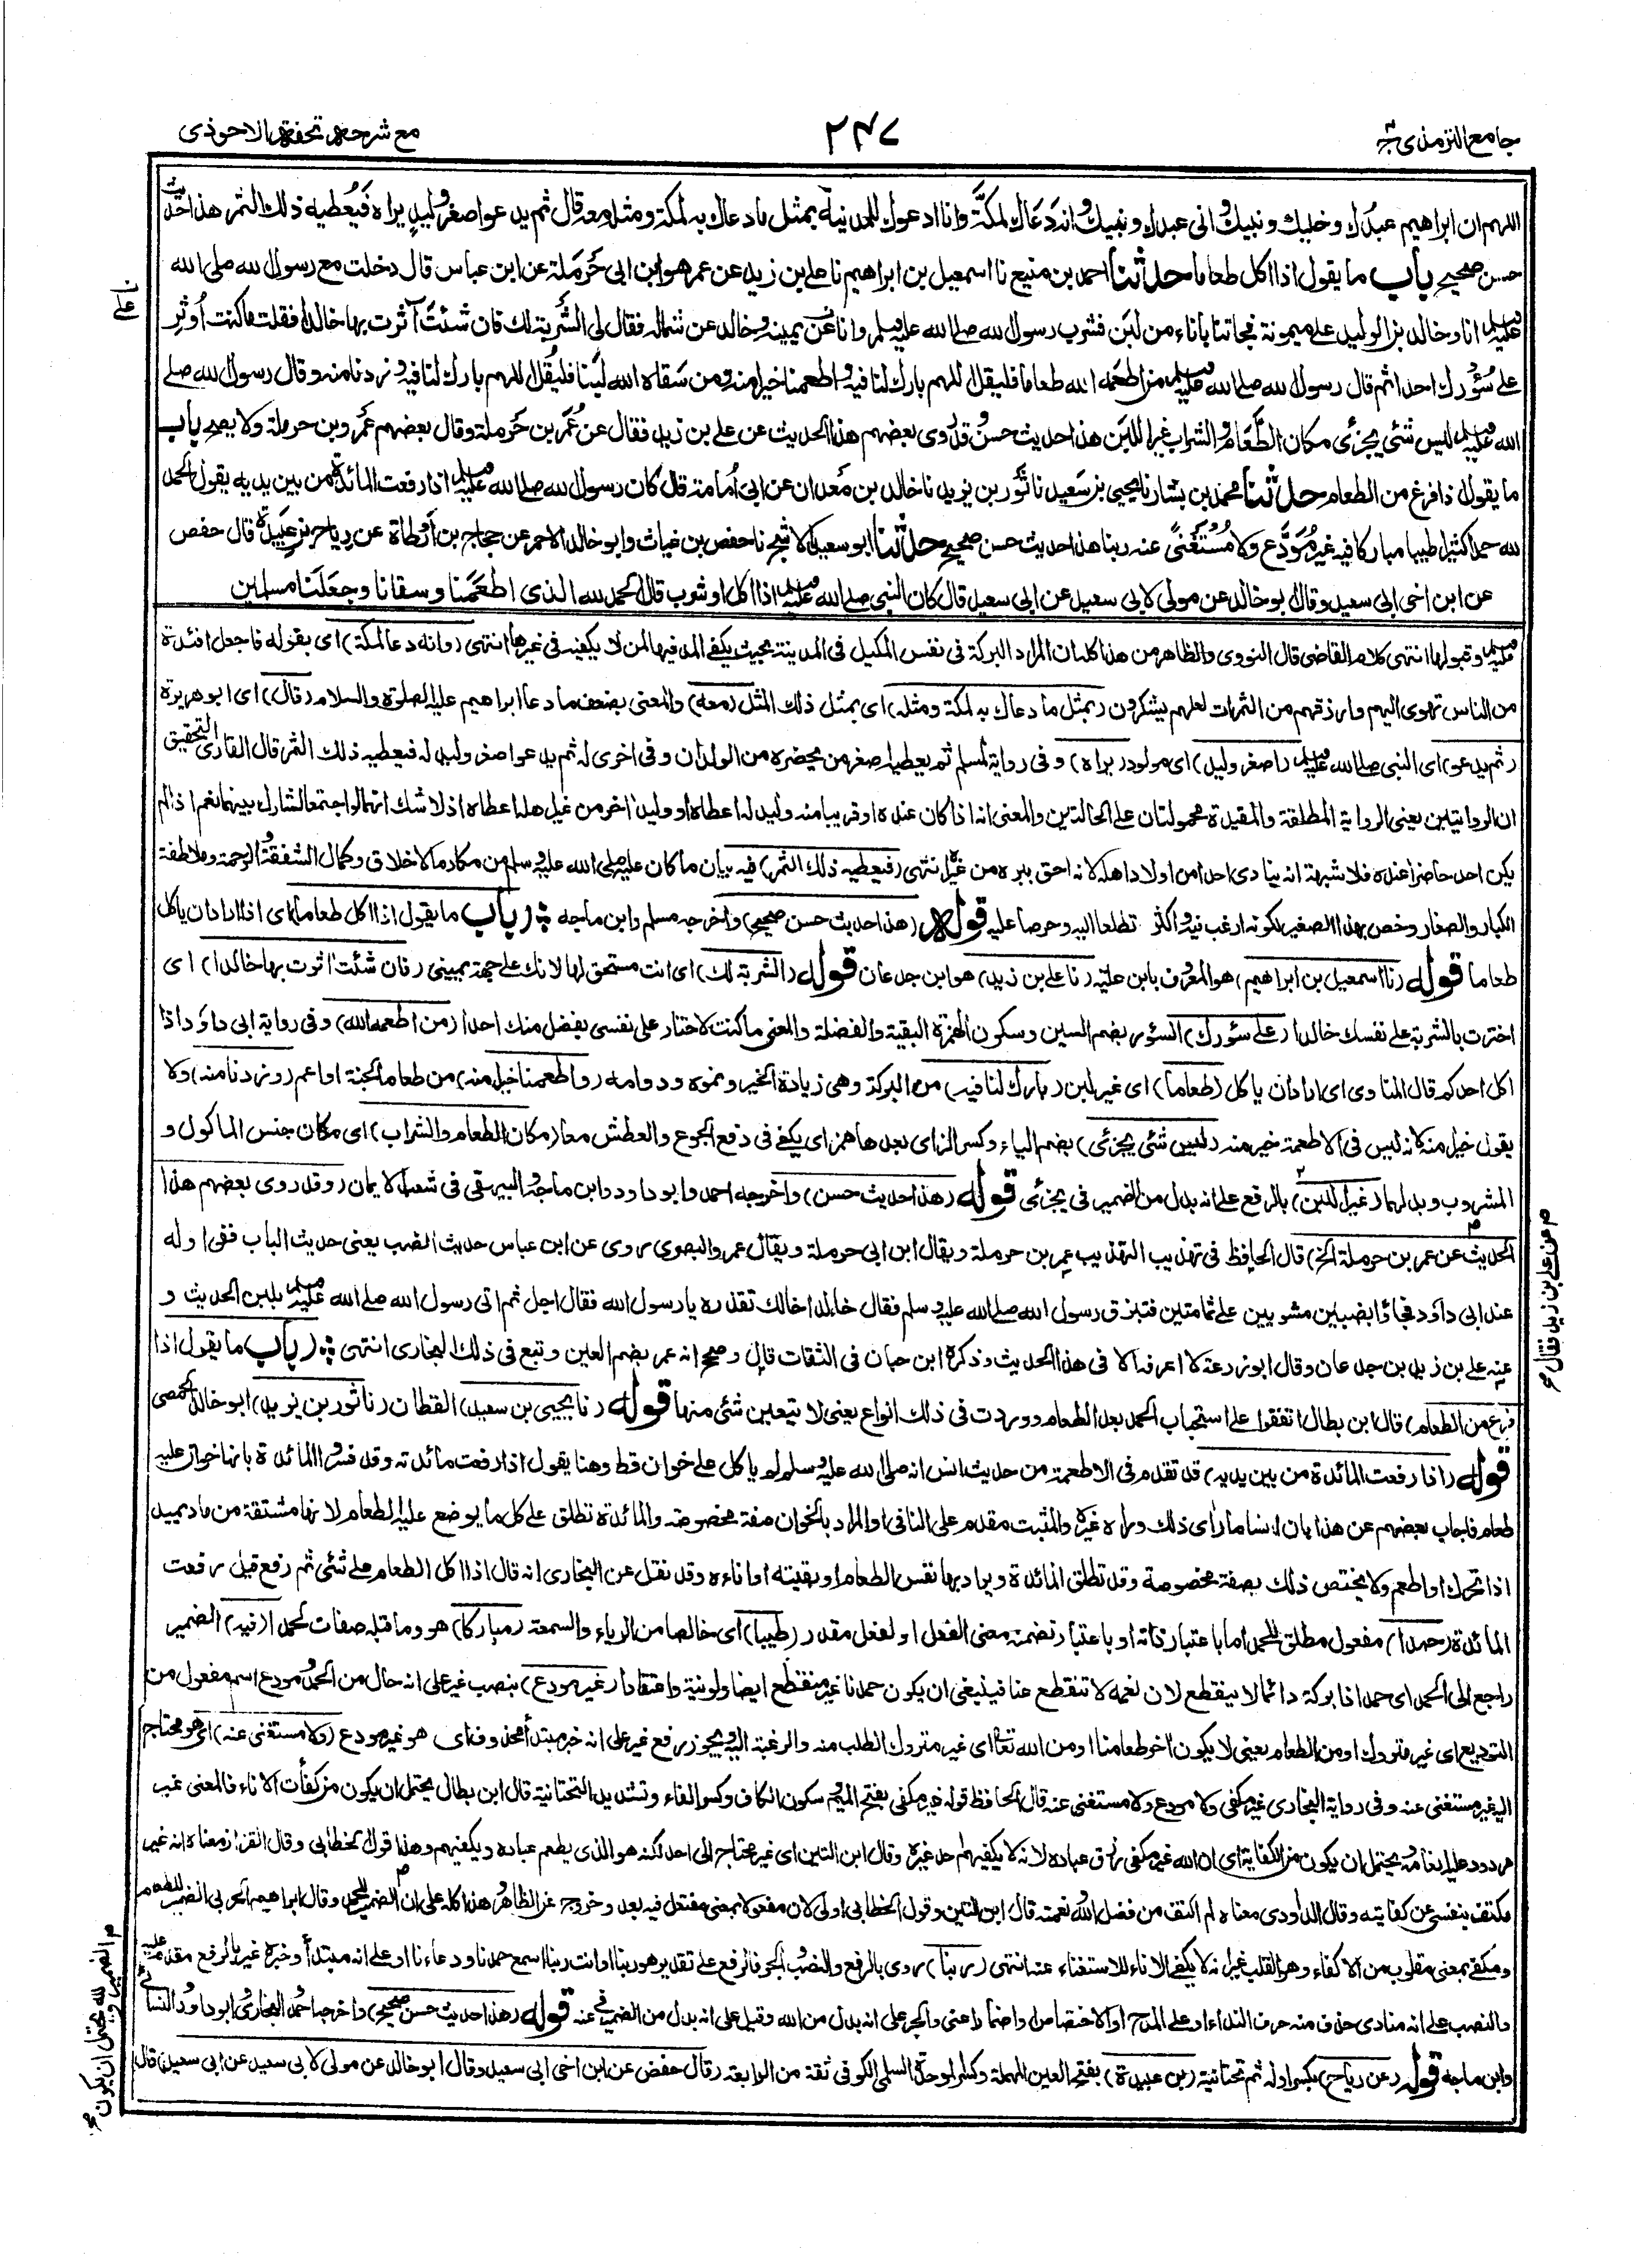 جامع الترمذي ج٣
٢٤٧
مع شرحه تحفة الاحوذي
اللهم ان ابراهيم عبدُك وخليلك ونبيك واني عبدك ونبيك وانه دَعَاك لمكَّةَ وانا ادعوك للمدينة بمثل ما دعاك به لمكة ومثله معه قال ثم يدعو اصغر وليدٍ يراه فَيُعطيه ذلك الثمر هذا حديث
حسن صحيح باب ما يقول اذا اكل طعاما حدثنا احمد بن منيع نا اسمعيل بن ابراهيم نا علي بن زيد عن عمر هو ابن ابي حَرملة عن ابن عباس قال دخلت مع رسول الله صلى الله
عليه وسلم انا وخالد بن الوليد على ميمونة فجاءتنا باناء من لبَن فشرب رسول الله صلى الله عليه وسلم وانا عن يمينه وخالد عن شماله فقال لي الشَّربة لك فان شئتَ آثرت بها خالدا فقلت ما كنت اُوثِر
على سُؤرك احدا ثم قال رسول الله صلى الله عليه وسلم من اطعمه الله طعاما فليقل اللهم بارك لنا فيه واطعمنا خيرا منه ومن سَقاه الله لَبنا فليقُل اللهم بارك لنا فيه وزدنا منه وقال رسول الله صلى
الله عليه وسلم ليس شئ يُجزئ مكان الطَّعَام والشراب غير اللبَن هذا حديث حسنٌ وقد رَوى بعضهم هذا الحديث عن علي بن زيد فقال عن عُمَر بن حَرملة وقال بعضهم عمرو بن حرملة ولا يصح باب
ما يقول اذا فرغ من الطعام حدثنا محمد بن بشار نا يحيى بن سَعيد نا ثَور بن يزيد نا خالد بن مَعدان عن ابي اُمامة قال كان رسول الله صلى الله عليه وسلم اذا رفعت المائدة من بين يديه يقول الحمد
لله حمدا كثيرا طيبا مباركا فيه غير مُوَدَّع ولا مُستَغنىً عنه ربنا هذا حديث حسن صحيح حدثنا ابو سعيد الاشج نا حفص بن غياث وابو خالد الاحمر عن حجاج بن اَرطاة عن رِياح بن عَبِيدة قال حفص
عن ابن اخي ابي سعيد وقال ابو خالد عن مولى لابي سعيد عن ابي سعيد قال كان النبي صلى الله عليه وسلم اذا اكل او شرب قال الحمد لله الذي اطعَمَنا وسقانا وجعلَنا مسلمين
عليه وسلم وقبولها انتهى كلام القاضي قال النووي والظاهر من هذا كله ان المراد البركة في نفس المكيل في المدينة بحيث يكفي المد فيها لمن لا يكفيه في غيرها انتهى (وانه دعا لمكة) اي بقوله فاجعل افئدة
من الناس تهوي اليهم وارزقهم من الثمرات لعلهم يشكرون (بمثل ما دعاك به لمكة ومثله) اي بمثل ذلك المثل (معه) والمعنى بضعف ما دعا ابراهيم عليه الصلوة والسلام (قال) اي ابو هريرة
(ثم يدعو) اي النبي صلى الله عليه وسلم (اصغر وليد) اي مولود (يراه) وفي رواية لمسلم ثم يعطيه اصغر من يحضره من الولدان وفي اخرى له ثم يدعو اصغر وليد له فيعطيه ذلك الثمر قال القاري التحقيق
ان الروايتين يعني الرواية المطلقة والمقيدة محمولتان على الحالتين والمعنى انه اذا كان عنده او قريبا منه وليد له اعطاه او وليد اخر من غير اهله اعطاه اذ لا شك انهما لو اجتمعا لشارك بينهما نعم اذا لم
يكن احد حاضرا عنده فلا شبهة انه ينادي احدا من اولاد اهله لانه احق ببره من غيره انتهى (فيعطيه ذلك الثمر) فيه بيان ما كان عليه صلى الله عليه وسلم من مكارم الاخلاق وكمال الشفقة والرحمة وملاطفة
الكبار والصغار وخص بهذا الصغير لكونه ارغب فيه واكثر تطلعا اليه وحرصا عليه قوله (هذا حديث حسن صحيح) واخرجه مسلم وابن ماجه ؞ (باب ما يقول اذا اكل طعاما) اي اذا اراد ان ياكل
طعاما قوله (نا اسمعيل بن ابراهيم) هو المعروف بابن علية (نا علي بن زيد) هو ابن جدعان قوله (الشربة لك) اي انت مستحق لها لانك على جهة يميني (فان شئت اثرت بها خالدا) اي
اخترت بالشربة على نفسك خالدا (على سؤرك) السؤر بضم السين وسكون الهمزة البقية والفضلة والمعنى ما كنت لاختار على نفسي بفضل منك احدا (من اطعمه الله) وفي رواية ابي داؤد اذا
اكل احدكم قال المناوي اي اراد ان ياكل (طعاما) اي غير لبن (بارك لنا فيه) من البركة وهي زيادة الخير ونموه ودوامه (واطعمنا خيرا منه) من طعام الجنة او اعم (وزدنا منه) ولا
يقول خيرا منه لانه ليس في الاطعمة خير منه (ليس شئ يجزئ) بضم الياء وكسر الزاي بعدها همز اي يكفي في دفع الجوع والعطش معا (مكان الطعام والشراب) اي مكان جنس الماكول و
المشروب وبدلهما (غير اللبن) بالرفع على انه بدل من الضمير في يجزئ قوله (هذا حديث حسن) واخرجه احمد وابو داود وابن ماجه والبيهقي في شعب الايمان (وقد روى بعضهم هذا
الحديث عن عمر بن حرملة الخ) قال الحافظ في تهذيب التهذيب عمر بن حرملة ويقال ابن ابي حرملة ويقال عمرو البصري روى عن ابن عباس حديث الضب يعني حديث الباب ففي اوله
عند ابي داؤد فجاؤا بضبين مشويين على ثمامتين فتبزق رسول الله صلى الله عليه وسلم فقال خالد اخالك تقذره يا رسول الله فقال اجل ثم اتي رسول الله صلى الله عليه وسلم بلبن الحديث و
عنه علي بن زيد بن جدعان وقال ابو زرعة لا اعرفه الا في هذا الحديث وذكره ابن حبان في الثقات قال وصح انه عمر بضم العين وتبع في ذلك البخاري انتهى ؞ (باب ما يقول اذا
فرغ من الطعام) قال ابن بطال اتفقوا على استحباب الحمد بعد الطعام ووردت في ذلك انواع يعني لا يتعين شئ منها قوله (نا يحيى بن سعيد) القطان (نا ثور بن يزيد) ابو خالد الحمصي
قوله (اذا رفعت المائدة من بين يديه) قد تقدم في الاطعمة من حديث انس انه صلى الله عليه وسلم لم ياكل على خوان قط وهنا يقول اذا رفعت مائدته وقد فسروا المائدة بانها خوان عليه
طعام فاجاب بعضهم عن هذا بان انسا ما رأى ذلك وراه غيره والمثبت مقدم على النافي او المراد بالخوان صفة مخصوصة والمائدة تطلق على كل ما يوضع عليه الطعام لانها مشتقة من ماد يميد
اذا تحرك او اطعم ولا يختص ذلك بصفة مخصوصة وقد تطلق المائدة ويراد بها نفس الطعام او بقيته او اناءه وقد نقل عن البخاري انه قال اذا اكل الطعام على شئ ثم رفع قيل رفعت
المائدة (حمدا) مفعول مطلق للحمد اما باعتبار ذاته او باعتبار تضمنه معنى الفعل او لفعل مقدر (طيبا) اي خالصا من الرياء والسمعة (مباركا) هو وما قبله صفات لحمدا (فيه) الضمير
راجع الى الحمد اي حمدا ذا بركة دائما لا ينقطع لان نعمه لا تنقطع عنا فينبغي ان يكون حمدنا غير منقطع ايضا ولو نية واعتقادا (غير مودع) بنصب غير على انه حال من الحمد ومودع اسم مفعول من
التوديع اي غير متروك او من الطعام يعني لا يكون اخر طعامنا او من الله تعالى اي غير متروك الطلب منه والرغبة اليه ويجوز رفع غير على انه خبر مبتدأ محذوف اي هو غير مودع (ولا مستغنى عنه) اي هو محتاج
اليه غير مستغنى عنه وفي رواية البخاري غير مكفي ولا مودع ولا مستغنى عنه قال الحافظ قوله غير مكفي بفتح الميم وسكون الكاف وكسر الفاء وتشديد التحتانية قال ابن بطال يحتمل ان يكون من كفأت الاناء فالمعنى غير
مردود عليه انعامه ويحتمل ان يكون من الكفاية اي ان الله غير مكفي رزق عباده لانه لا يكفيهم احد غيره وقال ابن التين اي غير محتاج الى احد لكنه هو الذي يطعم عباده ويكفيهم وهذا قول الخطابي وقال القزاز معناه انه غير
مكتف بنفسي عن كفايته وقال الداودي معناه لم اكتف من فضل الله ونعمته قال ابن التين وقول الخطابي اولى لان مفعولا بمعنى مفتعل فيه بعد وخروج عن الظاهر وهذا كله على ان الضمير لله وقال ابراهيم الحربي الضمير للطعام
ومكفي بمعنى مقلوب من الاكفاء وهو القلب غير انه لا يكفي الاناء للاستغناء عنه انتهى (ربنا) روي بالرفع والنصب والجر فالرفع على تقدير هو ربنا او انت ربنا اسمع حمدنا ودعاءنا او على انه مبتدأ وخبره غير بالرفع مقدم عليه
والنصب على انه منادى حذف منه حرف النداء او على المدح او الاختصاص او اضمار اعني والجر على انه بدل من الله وقيل على انه بدل من الضمير في عنه قوله (هذا حديث حسن صحيح) واخرجه احمد والبخاري وابو داود والنسائي
وابن ماجه قوله (عن رياح) بكسر اوله ثم تحتانية (بن عبيدة) بفتح العين المهملة وكسر الموحدة السلمي الكوفي ثقة من الرابعة (قال حفص عن ابن اخي ابي سعيد وقال ابو خالد عن مولى لابي سعيد عن ابي سعيد) قال
على
م عن علي بن زيد فقال
م الضمير لله ويحتمل ان يكون